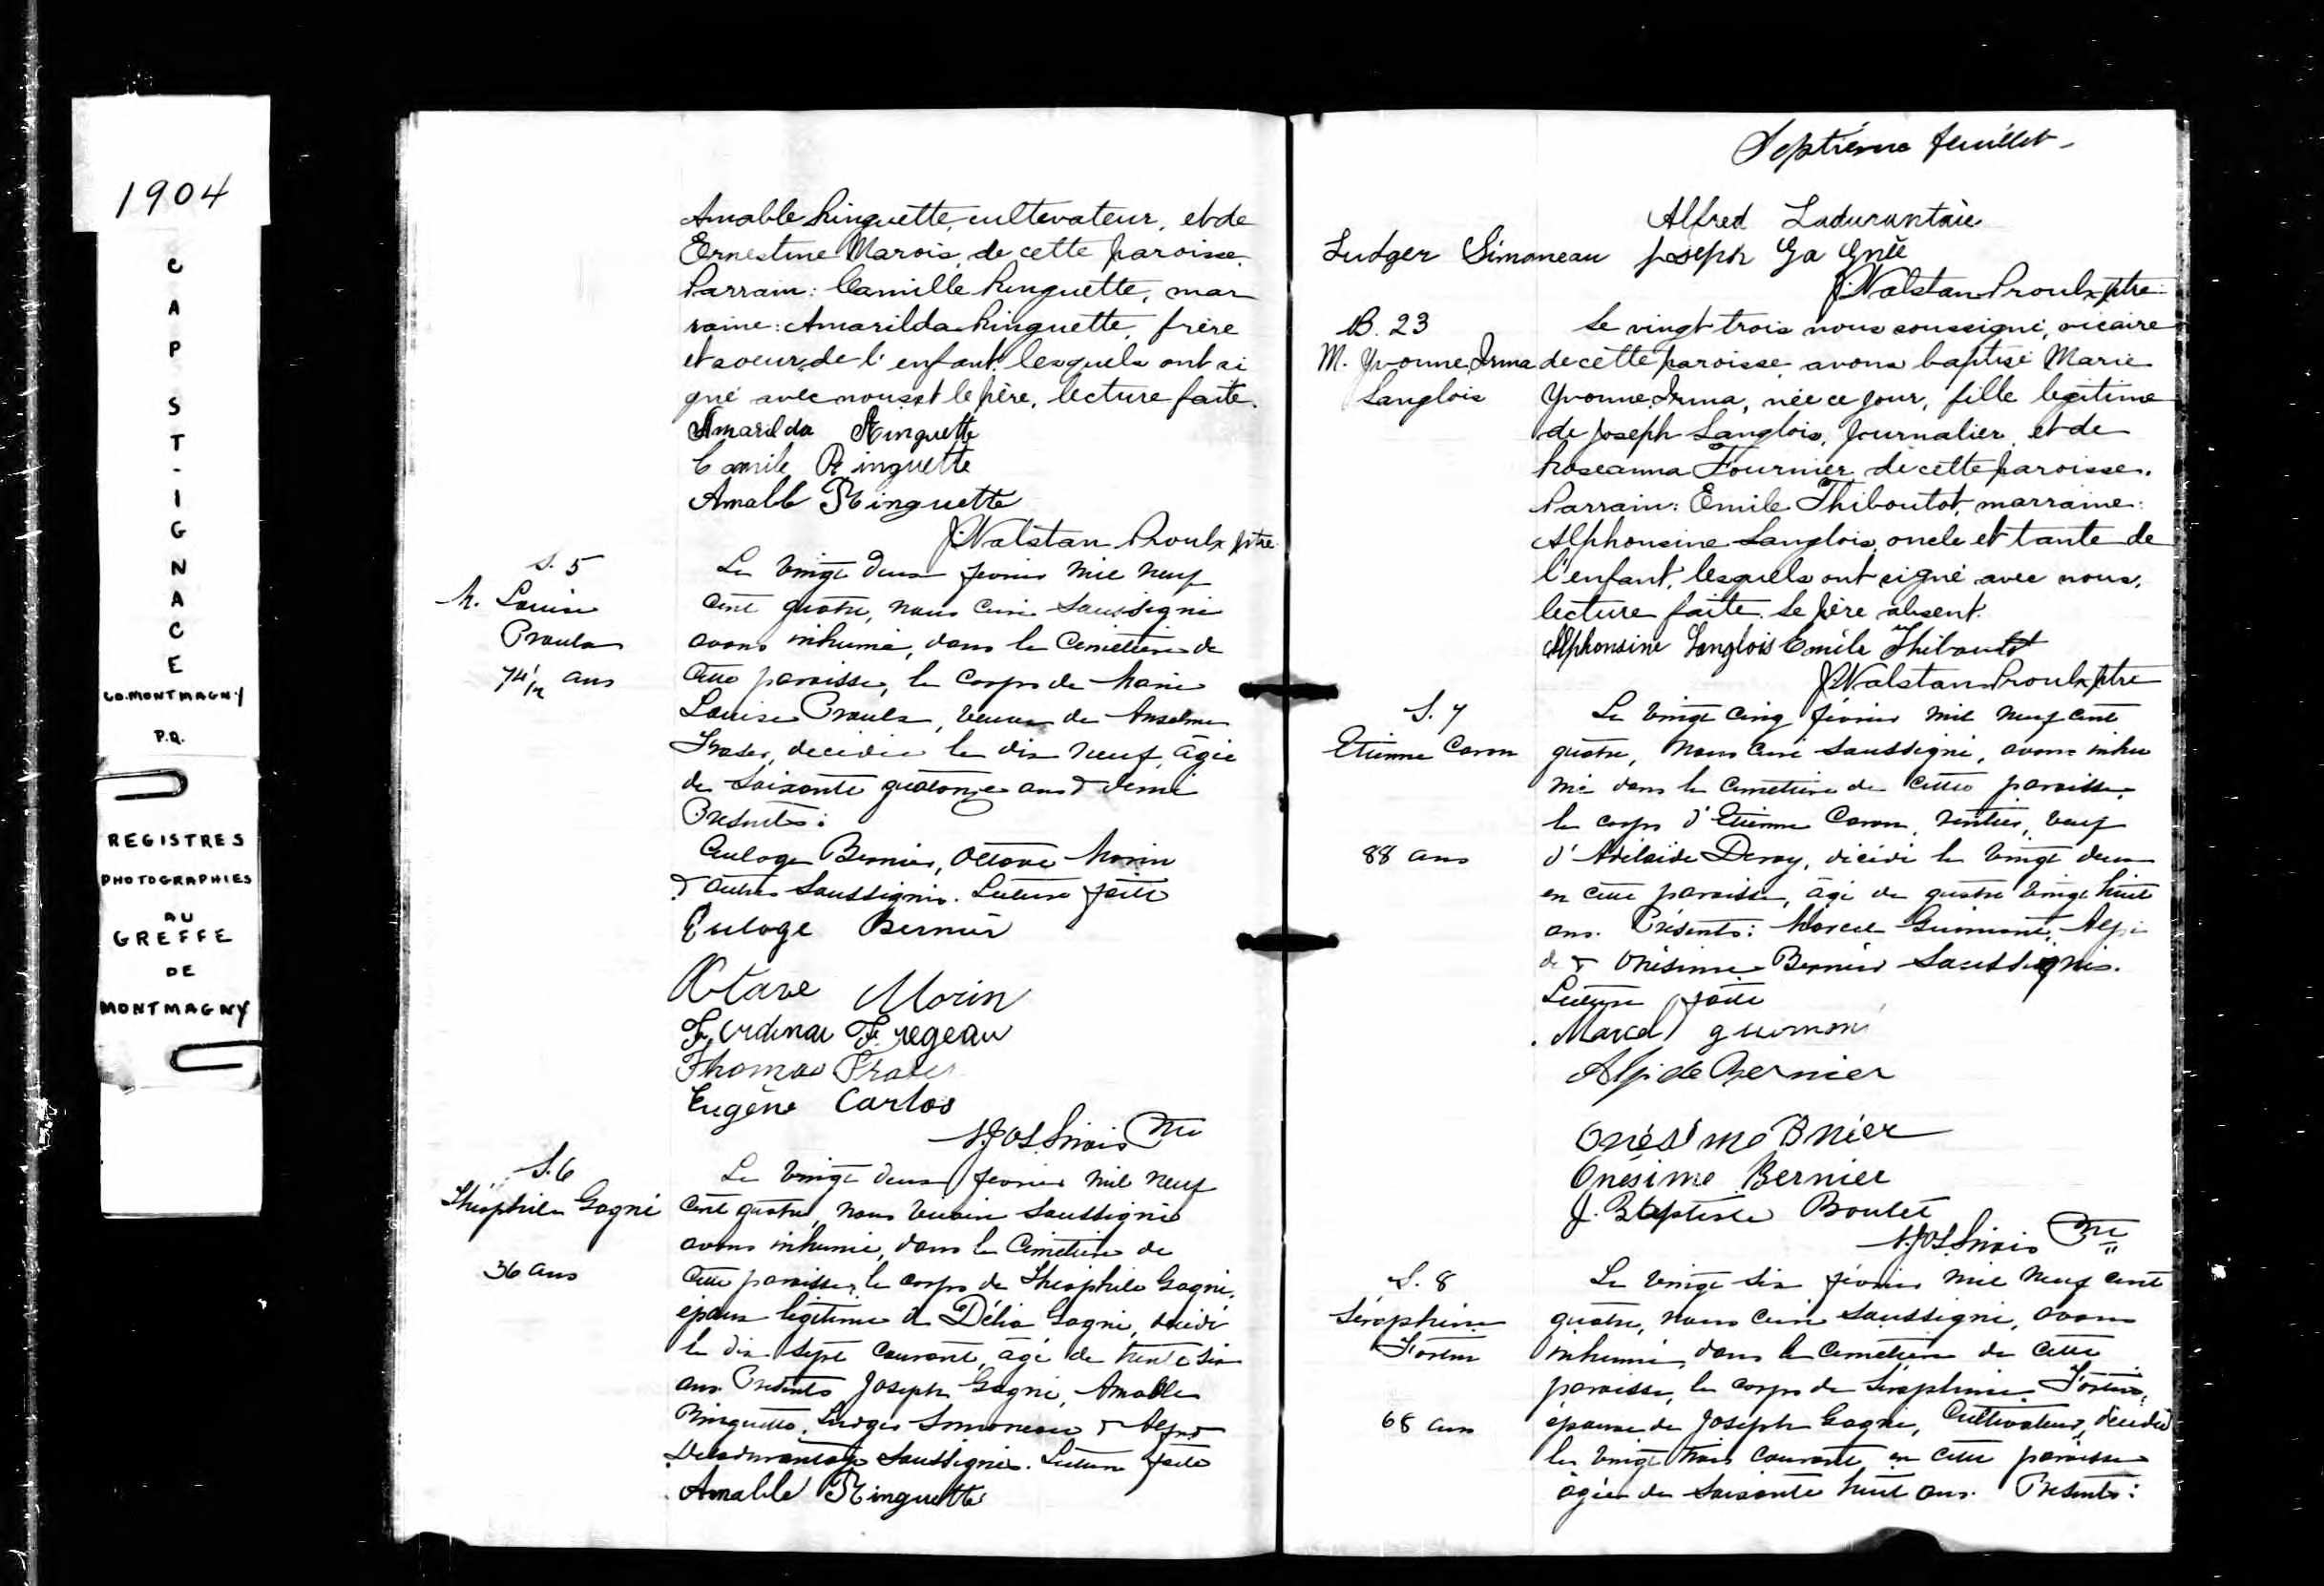 1904
CAP ST-IGNACE
CO. MONTMAGNY
P.Q.
REGISTRES
PHOTOGRAPHIES
AU
GREFFE
DE
MONTMAGNY
Amable Ringuette, cultivateur, et de
Ernestine Marois, de cette paroisse.
Parrain: Camille Ringuette, mar
raine: Amarilda Ringuette, frère
et soeur de l'enfant, lesquels ont si
gné avec nous et le père, lecture faite.
Amarilda Ringuette
Camile Ringuette
Amable Ringuette
J. Walstan Proulx ptre
S. 5
M. Louise
Proulx
74 1/2 ans
Le vingt deux février mil neuf
cent quatre, nous curé soussigné
avons inhumé, dans le cimetière de
cette paroisse, le corps de Marie
Louise Proulx, veuve de Anselme
Fraser, décédée le dix neuf, âgée
de soixante quatorze ans & demi
Présents:
Euloge Bernier, Octave Morin
& autres soussignés. Lecture faite
Euloge Bernier
Octave Morin
Ferdinan Fregeau
Thomas Fraser
Eugène Carlos
N. Jos. Sirois Ptre
S. 6
Théophile Gagné
36 ans
Le vingt deux février mil neuf
cent quatre, nous vicaire soussigné
avons inhumé, dans le cimetière de
cette paroisse, le corps de Théophile Gagné,
époux légitime de Délia Gagné, décédé
le dix sept courant, âgé de trente six
ans. Présents Joseph Gagné, Amable
Ringuette, Ludger Simoneau & Alfred
Deladurantaye soussignés. Lecture faite
Amable Ringuette
Septième feuillet
Alfred Ladurantaie
Ludger Simoneau Joseph Ga Gnée
J. Walstan Proulx ptre
B. 23
M. Yvonne Irma
Langlois
Le vingt trois nous soussigné, vicaire
de cette paroisse, avons baptisé Marie
Yvonne Irma, née ce jour, fille legitime
de Joseph Langlois, journalier, et de
Roseanna Fournier de cette paroisse.
Parrain: Emile Thiboutot, marraine:
Alphonsine Langlois, oncle et tante de
l'enfant, lesquels ont signé avec nous,
lecture faite. Le père absent.
Alphonsine Langlois Emile Thiboutot
J. Walstan Proulx ptre
S. 7
Etienne Caron
88 ans
Le vingt cinq février mil neuf cent
quatre, nous curé soussigné, avons inhu
mé dans le cimetière de cette paroisse,
le corps d'Etienne Caron, rentier, veuf
d'Adélaide Deroy, décédé le vingt deux
en cette paroisse, âgé de quatre vingt huit
ans. Présents: Marcel Guimont, Alpi
de & Onésime Bernier soussignés.
Lecture faite
Marcel guimon
Alpide Bernier
Onésime Bnier
Onésime Bernier
J. Baptiste Boulet
N. Jos. Sirois Ptre
S. 8
Séraphine
Fortin
68 ans
Le vingt six février mil neuf cent
quatre, nous curé soussigné, avons
inhumé, dans le cimetière de cette
paroisse, le corps de Séraphine Fortin,
épouse de Joseph Gagné, cultivateur, décédée
le vingt trois courant en cette paroisse
âgée de soixante huit ans. Présents: